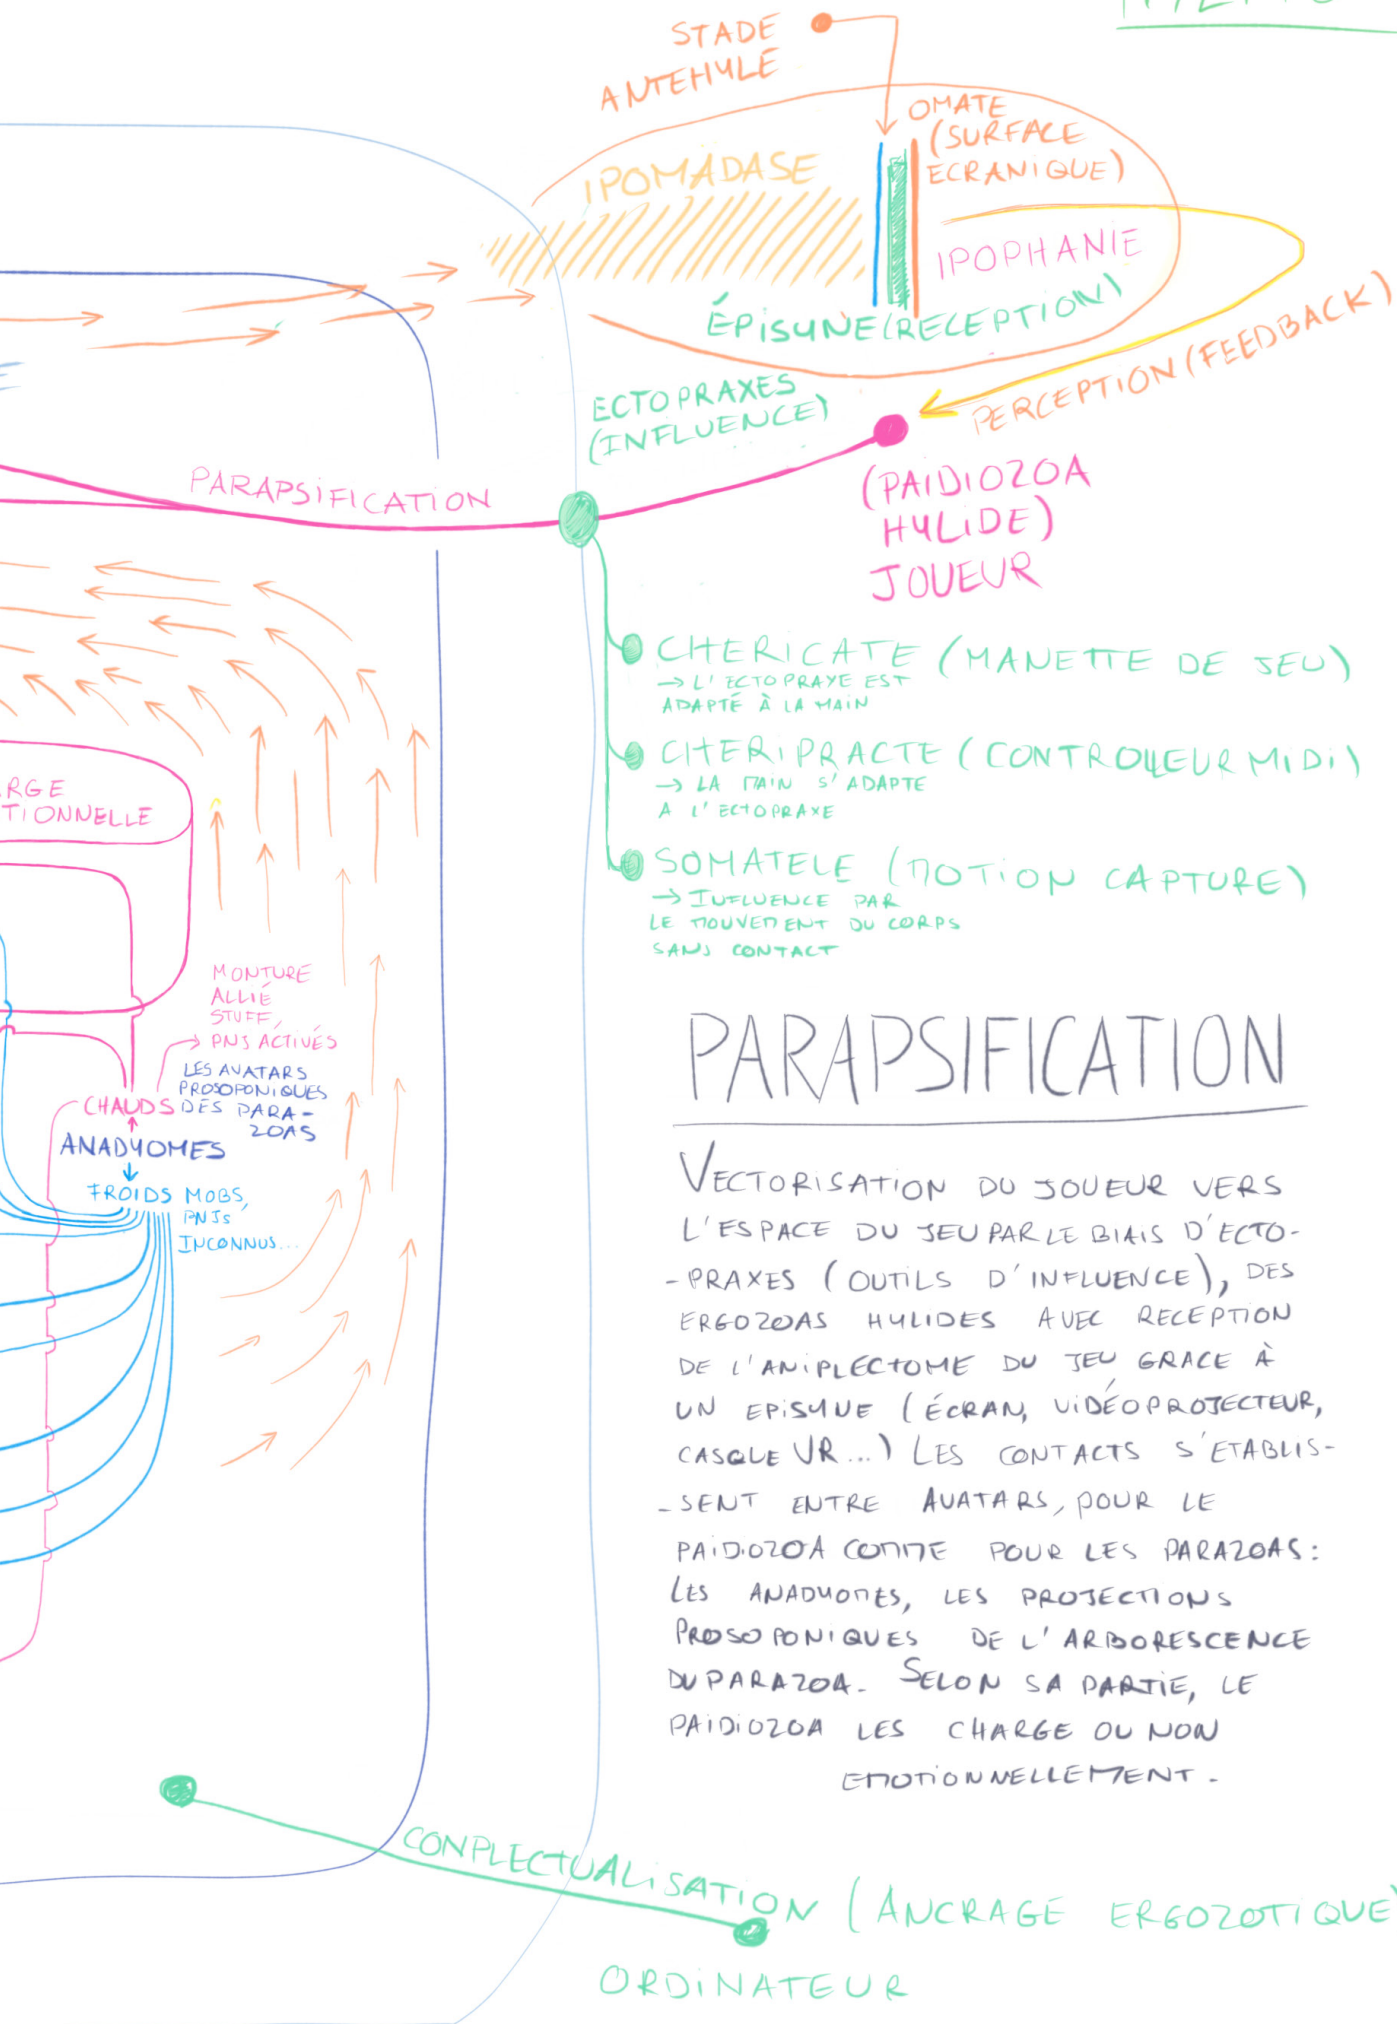 STADE
ANTEHYLE
OMATE
(SURFACE
ECRANIQUE)
IPOMADASE
IPOPHANIE
ÉPISUNE (RECEPTION)
PERCEPTION (FEEDBACK)
ECTOPRAXES
(INFLUENCE)
PARAPSIFICATION
(PAIDIOZOA
HYLIDE)
JOUEUR
CHERICATE (MANETTE DE JEU)
→ L'ECTOPRAXE EST
ADAPTÉ À LA MAIN
CHERIPRACTE (CONTROLLEUR MIDI)
→ LA MAIN S'ADAPTE
A L'ECTOPRAXE
SOMATELE (MOTION CAPTURE)
→ INFLUENCE PAR
LE MOUVEMENT DU CORPS
SANS CONTACT
RGE
TIONNELLE
MONTURE
ALLIÉ
STUFF,
PNJ ACTIVÉS
LES AVATARS
PROSOPONIQUES
DES PARA-
ZOAS
CHAUDS
ANADYOMES
FROIDS MOBS,
PNJs
INCONNUS...
PARAPSIFICATION
VECTORISATION DU JOUEUR VERS
L'ESPACE DU JEU PAR LE BIAIS D'ECTO-
-PRAXES (OUTILS D'INFLUENCE), DES
ERGOZOAS HYLIDES AVEC RECEPTION
DE L'ANIPLECTOME DU JEU GRACE À
UN EPISYNE (ÉCRAN, VIDÉOPROJECTEUR,
CASQUE VR...) LES CONTACTS S'ETABLIS-
-SENT ENTRE AVATARS, POUR LE
PAIDIOZOA COMME POUR LES PARAZOAS:
LES ANADYOMES, LES PROJECTIONS
PROSOPONIQUES DE L'ARBORESCENCE
DU PARAZOA. SELON SA PARTIE, LE
PAIDIOZOA LES CHARGE OU NON
EMOTIONNELLEMENT.
CONPLECTUALISATION (ANCRAGE ERGOZOTIQUE)
ORDINATEUR